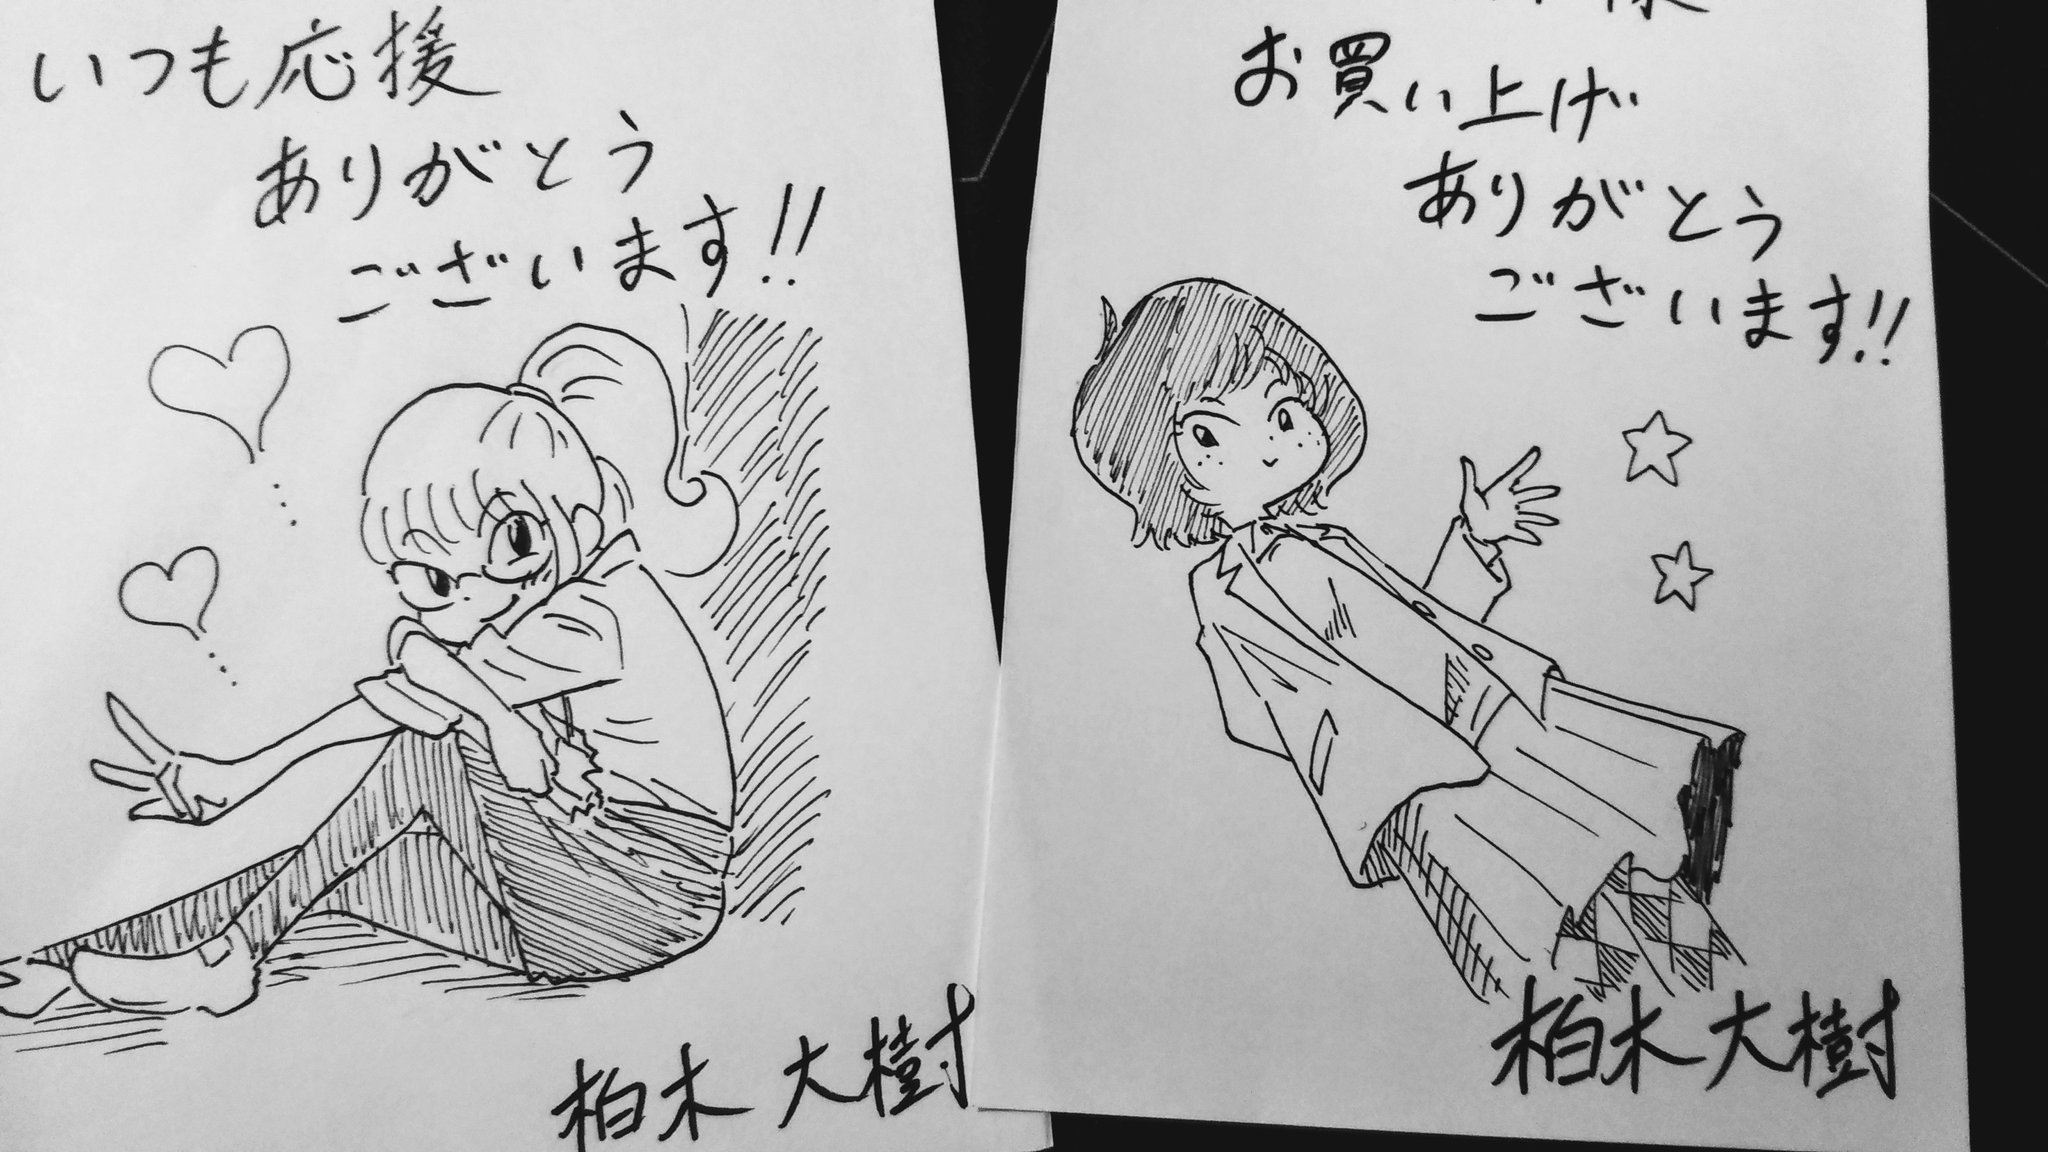 いつも応援
ありがとう
ございます!!
柏木大樹
様
お買い上げ
ありがとう
ございます!!
柏木大樹